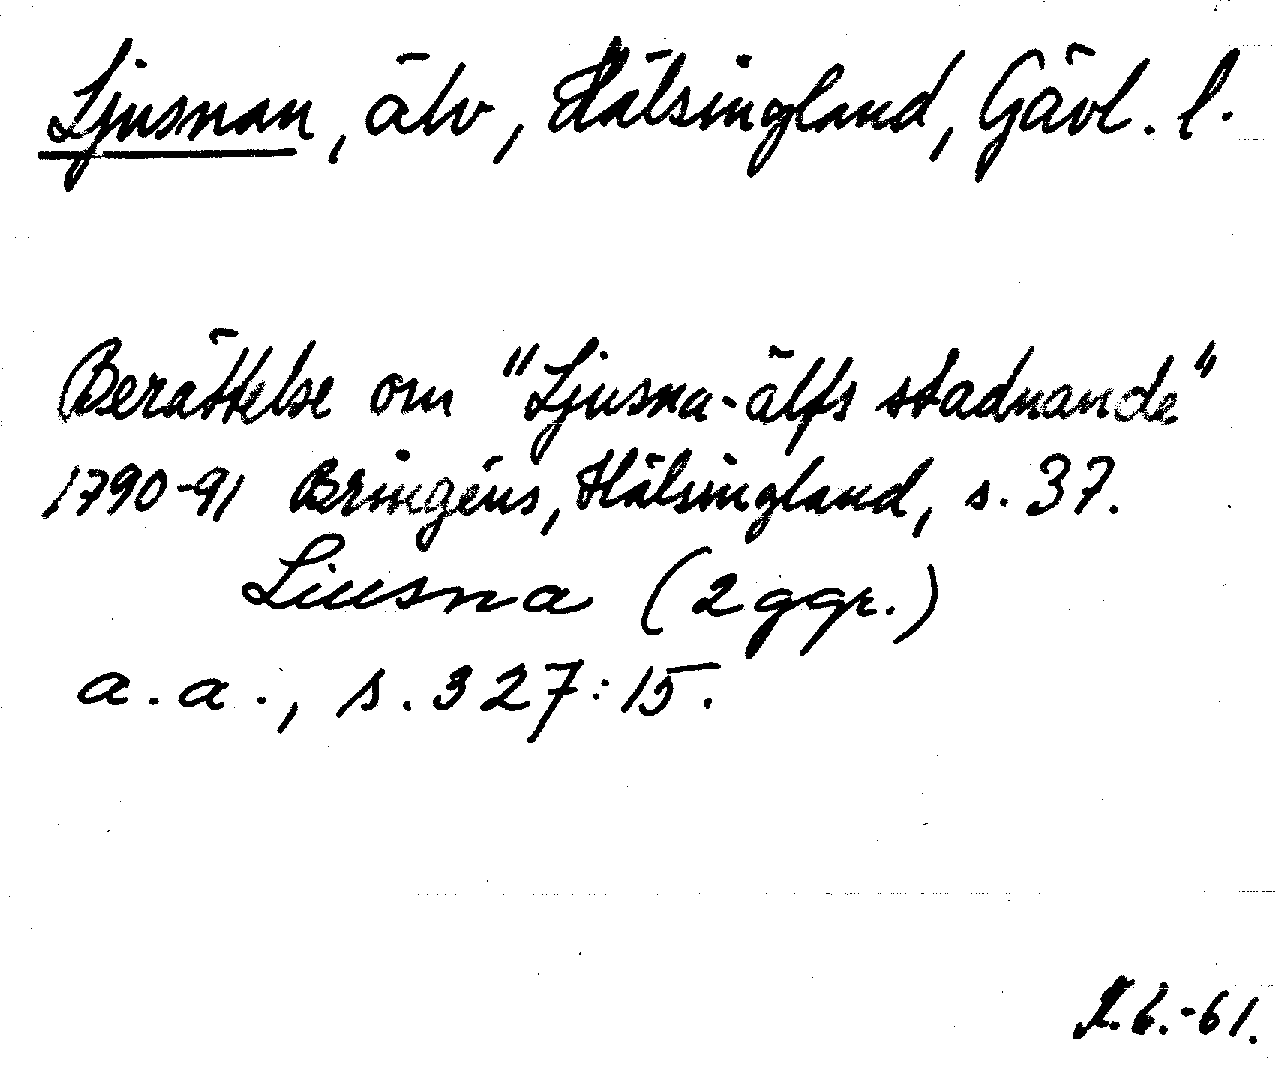 Ljusnan, älv, Hälsingland, Gävl. l.
Berättelse om "Ljusna-älfs stadnande"
1790-91 Bringéus, Hälsingland, s. 37.
Liusna (2 ggr.)
a.a., s. 327:15.
6.-61.